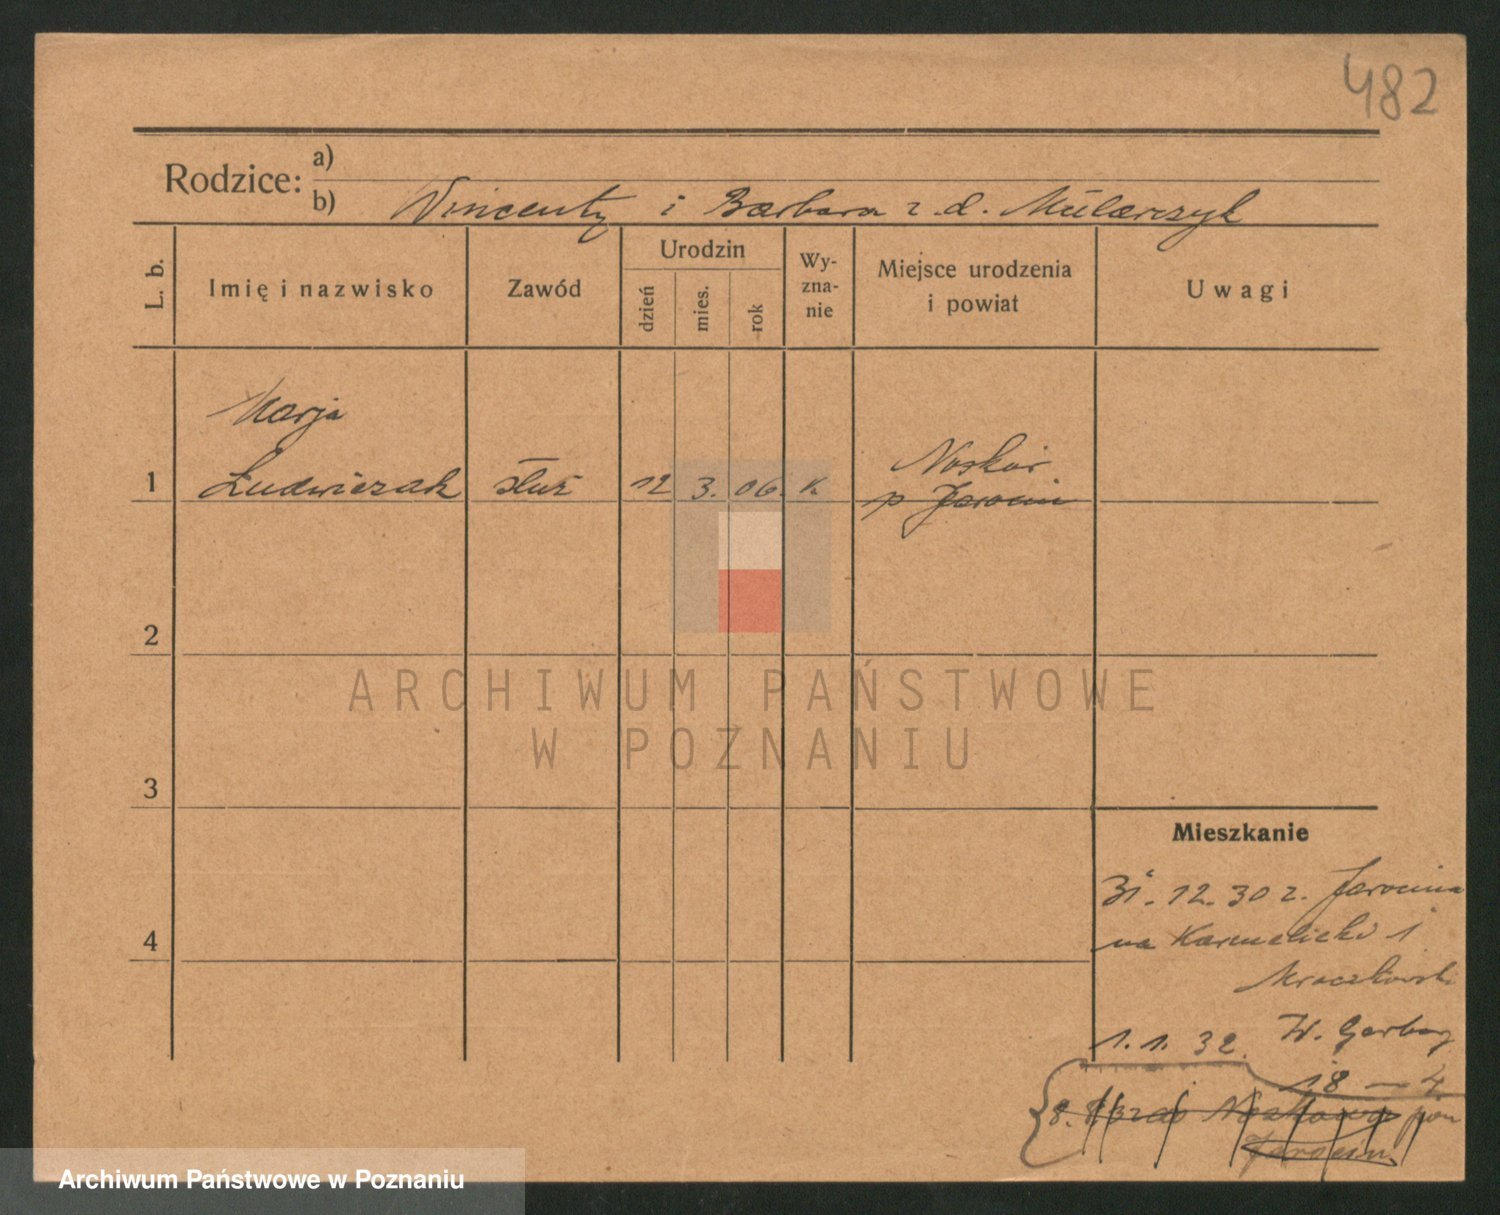 482
Rodzice: a)
b) Wincenty i Barbara z d. Mularczyk
L. b.
Imię i nazwisko
Zawód
Urodzin
dzień
mies.
rok
Wy-
zna-
nie
Miejsce urodzenia
i powiat
Uwagi
Marja
1 Ludwiczak służ 12 3. 06. K. Noskow
p Jarocin
2
3
4
ARCHIWUM PAŃSTWOWE
W POZNANIU
Mieszkanie
31. 12. 30 z. Jarocina
na Karmelicka 1
Mroczkowski
1. 1. 32. W. Garbary
18 — 4
8. Noskowa pow
Jarocin
Archiwum Państwowe w Poznaniu